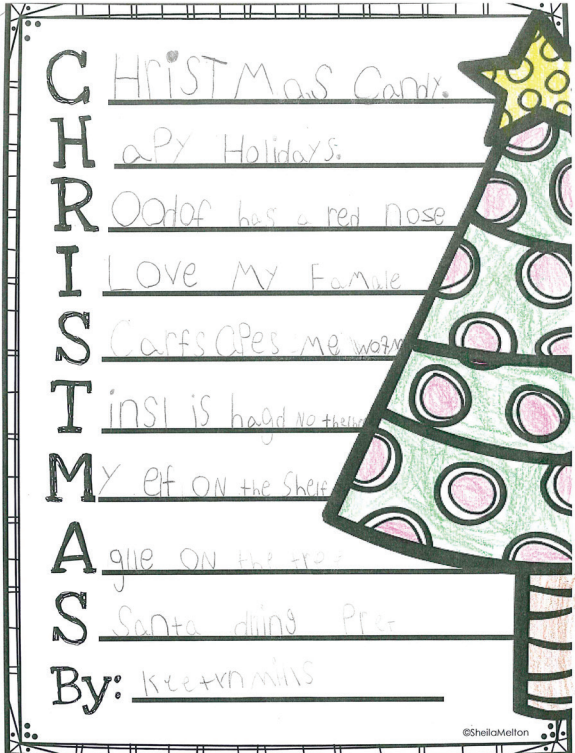 C HrisTMas Candy.
H aPy Holidays.
R OOdof has a red nose
I LOVE MY FaMale
S Carfs CPes me worm
T insl is hagd No the
MY elf ON the Shelf
A glle ON the tree
S Santa diing
By:
©SheilaMelton